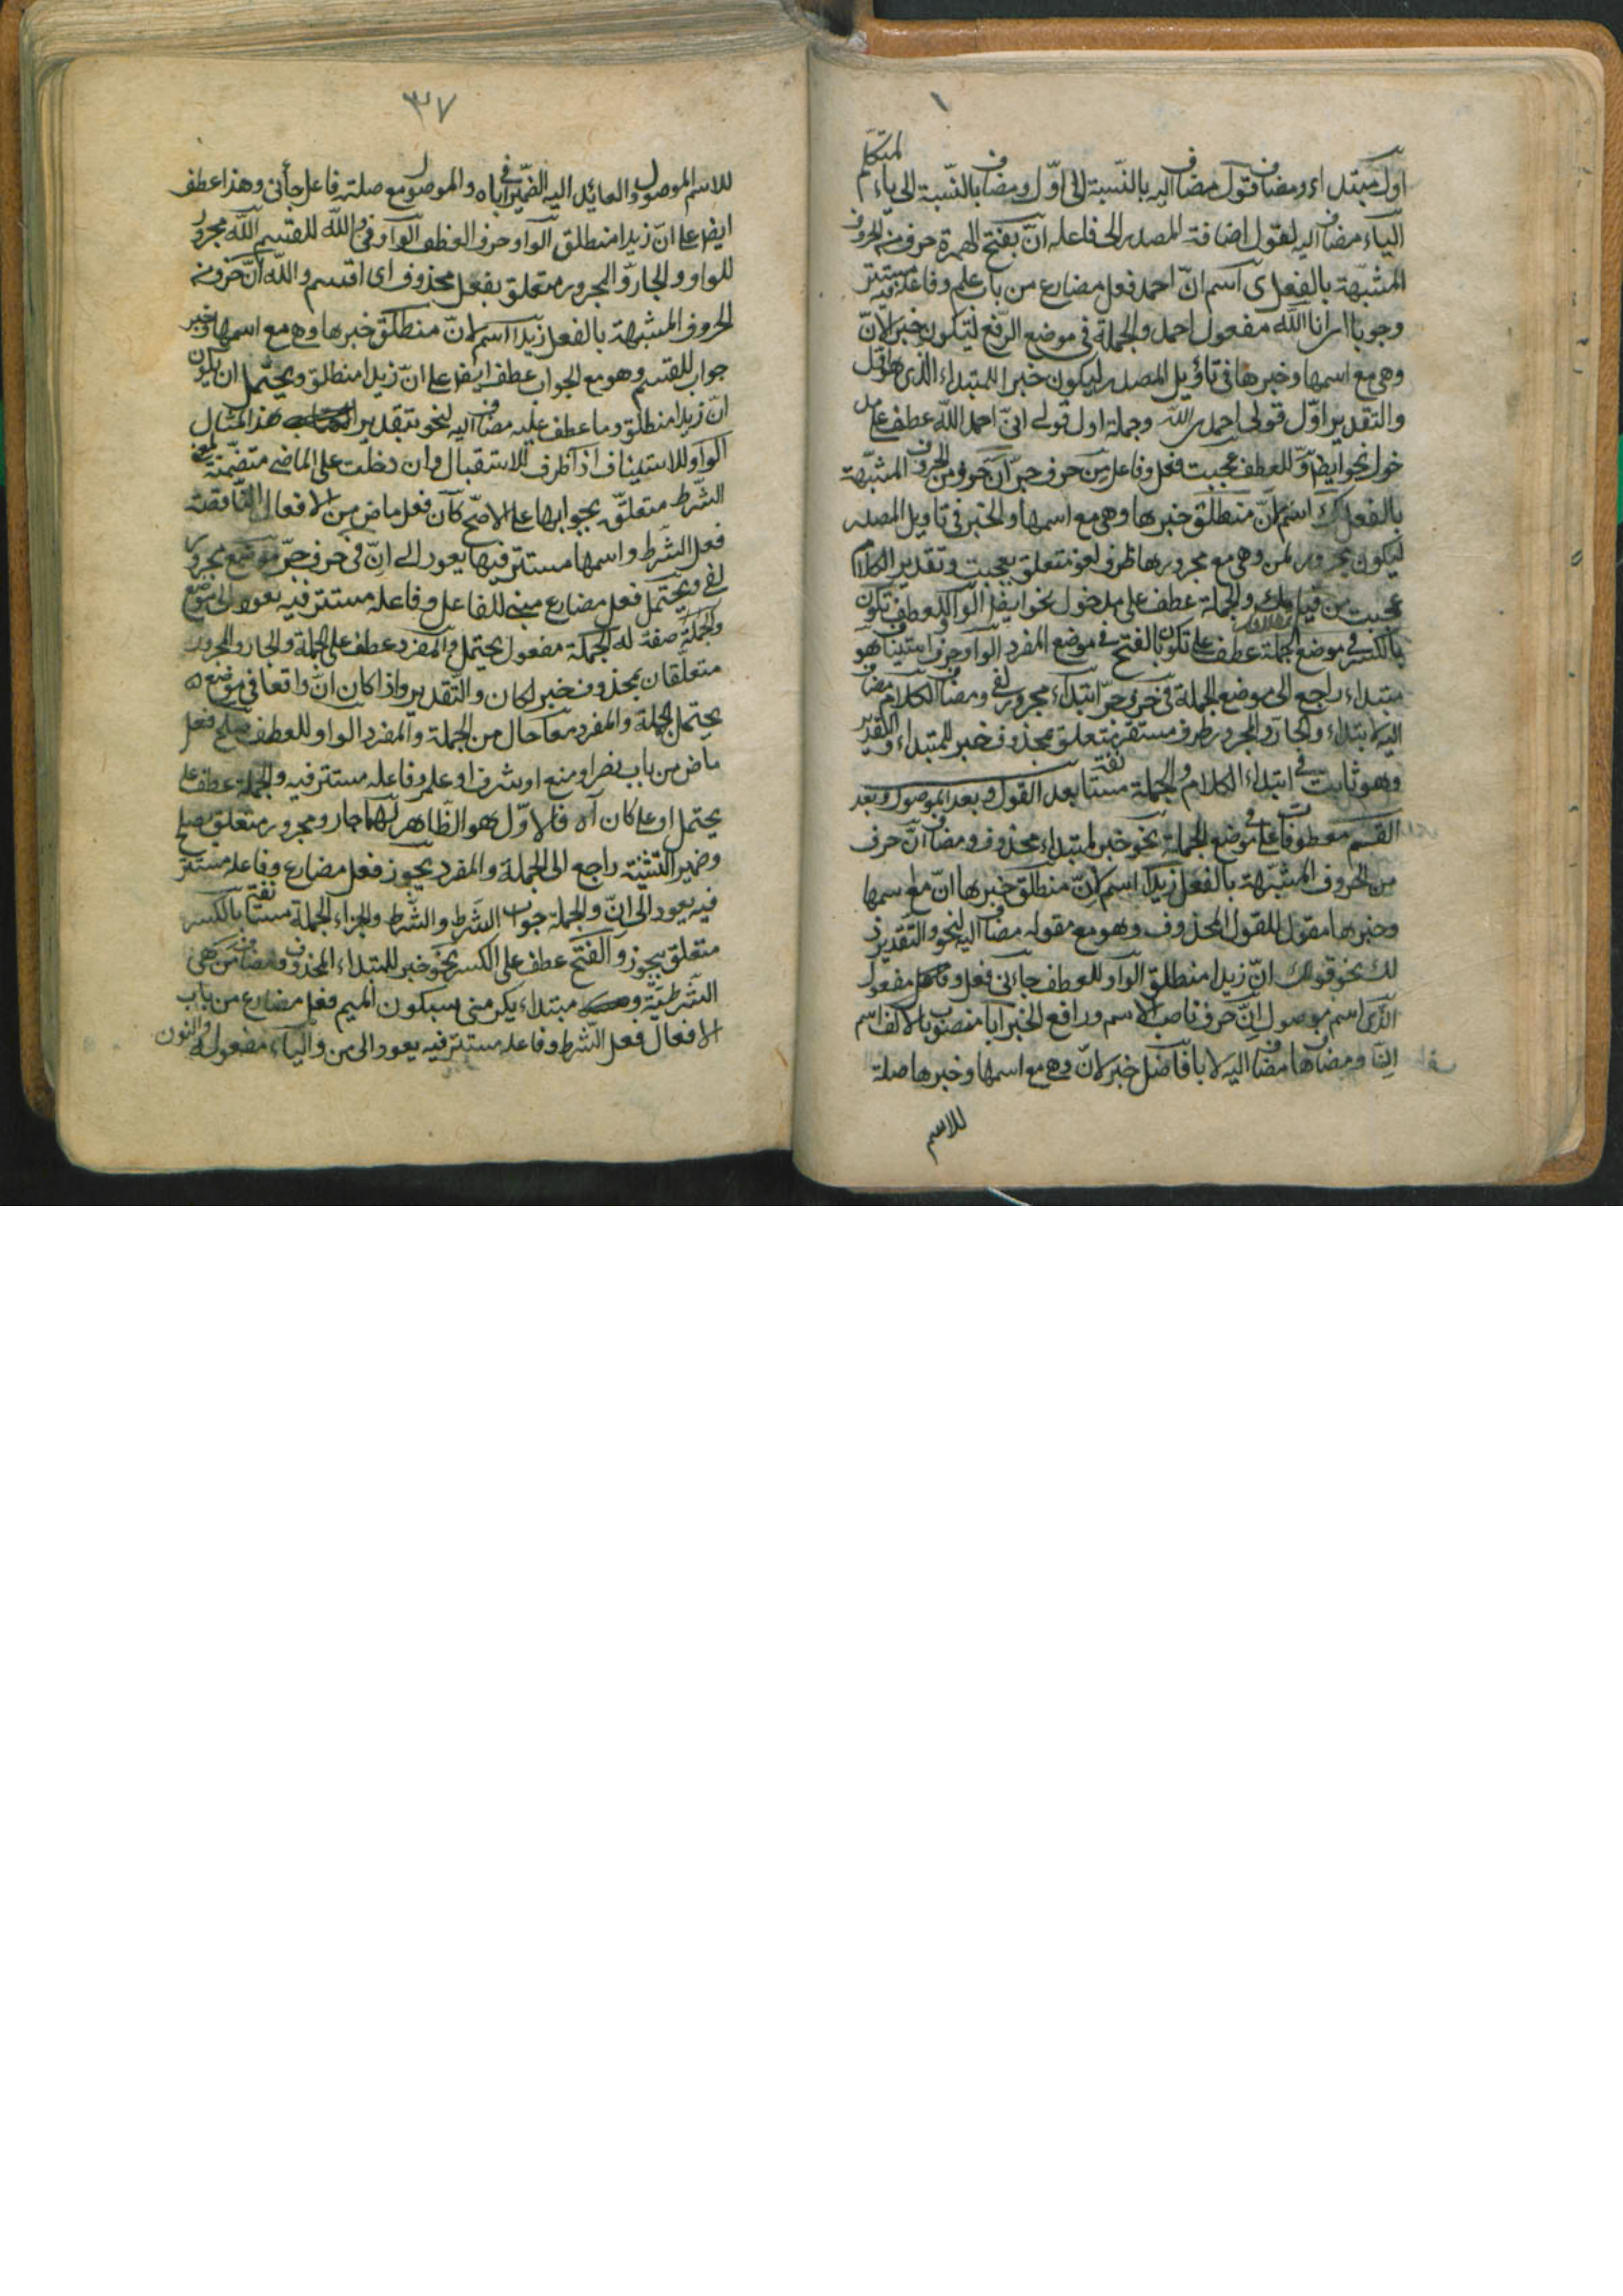 اول مبتداء ومضاف قول مضاف اليه بالنسبة الى اول ومضاف بالنسبة الى ياء المتكلم
الياء مضاف اليه لقول اضافة المصدر الى فاعله ان بفتح الهمزة حرف من الحروف
المشبهة بالفعل ى اسم ان احمد فعل مضارع من باب علم وفاعله مستتر فيه
وجوبا انا الله مفعول احمد والجملة فى موضع الرفع ليكون خبر لان
وهى مع اسمها وخبرها فى تأويل المصدر ليكون خبرا للمبتداء الذى هو اول
والتقدير اول قولى احمد الله وجملة اول قولى انى احمد الله عطف على مد
خول نحو ايضا و للعطف عجبت فعل وفاعل من حرف جر ان حرف من الحروف المشبهة
بالفعل ك اسم ان منطلق خبرها وهى مع اسمها والخبر فى تاويل المصدر
ليكون مجرور لمن وهى مع مجرورها ظرف لغو متعلق بعجبت وتقدير الكلام
عجبت من قيامك والجملة عطف على مدخول نحو ايضا الواو للعطف تكون
بالكسر فى موضع الجملة عطف على تكون بالفتح فى موضع المفرد الواو حرف استيناف هو
مبتداء راجع الى موضع الجملة فى حرف جر ابتداء مجرور لفى ومضاف الكلام مضاف
اليه لابتداء والجار والمجرور ظرف مستقر متعلق بمحذوف خبر للمبتداء والتقدير
وهو ثابت فى ابتداء الكلام والجملة مستانفة بعد القول وبعد الموصول وبعد
القسم معطوفات على فى موضع الجملة نحو خبر لمبتداء محذوف ومضاف ان حرف
من الحروف المشبهة بالفعل زيدا اسم ان منطلق خبرها ان مع اسمها
وخبرها مقول للقول المحذوف وهو مع مقوله مضاف اليه لنحو والتقدير
لك نحو قولك ان زيدا منطلق الواو للعطف جاءنى فعل و مفعول
الذى اسم موصول ان حرف ناصب الاسم ورافع الخبر ابا منصوب بالالف اسم
ان ومضاف ها مضاف اليه لابا فاضل خبر لان وهى مع اسمها وخبرها صلة
للاسم
٣٧
للاسم الموصول والعايد اليه الضمير فى اباه والموصول مع صلته فاعل جأنى وهذا عطف
ايضا على ان زيدا منطلق الواو حرف العطف الواو فى والله للقسم الله مجرور
للواو والجار والمجرور متعلق بفعل محذوف اى اقسم والله ان حرف من
الحروف المشبهة بالفعل زيدا اسم لان منطلق خبرها وهى مع اسمها وخبر
جواب للقسم وهو مع الجواب عطف ايضا على ان زيدا منطلق ويحتمل ان يكون
ان زيدا منطلق وما عطف عليه مضاف اليه لنحو بتقدير هذا المثال
الواو للاستيناف اذا ظرف للاستقبال وان دخلت على الماضى متضمنة لمعنى
الشرط متعلق بجوابها على الاصح كان فعل ماض من الافعال الناقصة
فعل الشرط واسمها مستتر فيها يعود الى ان فى حرف جر موضع مجرور
لفى ويحتمل فعل مضارع مبنى للفاعل وفاعله مستتر فيه يعود الى موضع
والجملة صفة له الجملة مفعول يحتمل والمفرد عطف على الجملة والجار والمجرور
متعلقان بمحذوف خبر لكان والتقدير واذا كان ان واقعا فى موضع
يحتمل الجملة والمفرد معا حال من الجملة والمفرد الواو للعطف صلح فعل
ماض من باب نصر او منع او شرف او علم وفاعله مستتر فيه والجملة عطف على
يحتمل او على كان اه فالاول هو الظاهر لهما جار ومجرور متعلق بصلح
وضمير التثنية راجع الى الجملة والمفرد يجوز فعل مضارع وفاعله مستتر
فيه يعود الى ان والجملة جواب الشرط والشرط والجزاء الجملة مستانفة بالكسر
متعلق بيجوز و الفتح عطف على الكسر نحو خبر للمبتداء المحذوف ومضاف من هى
الشرطية و مبتداء يكرمنى بسكون الميم فعل مضارع من باب
الافعال فعل الشرط وفاعله مستتر فيه يعود الى من والياء مفعوله والنون